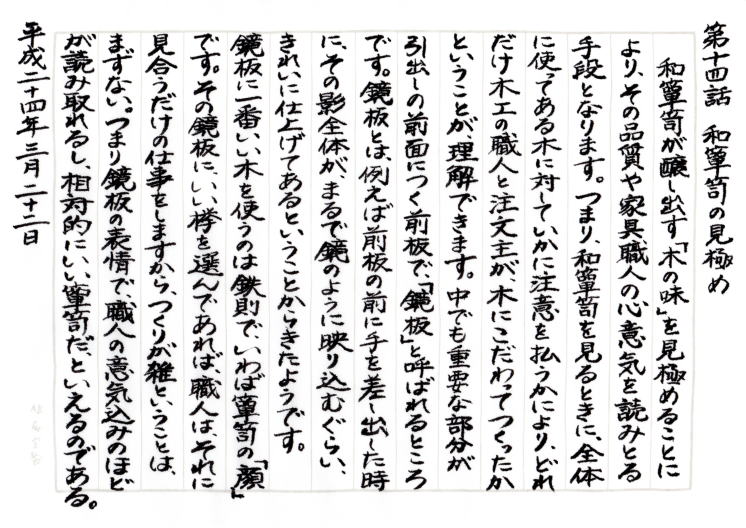 第十四話　和簞笥の見極め
和簞笥が醸し出す「木の味」を見極めることに
より、その品質や家具職人の心意気を読みとる
手段となります。つまり、和簞笥を見るときに、全体
に使ってある木に対していかに注意を払うかにより、どれ
だけ木工の職人と注文主が木にこだわってつくったか
ということが理解できます。中でも重要な部分が
引出しの前面につく前板で、「鏡板」と呼ばれるところ
です。鏡板とは、例えば前板の前に手を差し出した時
に、その影全体が、まるで鏡のように映り込むぐらい、
きれいに仕上げてあるということからきたようです。
鏡板に一番いい木を使うのは鉄則で、いわば簞笥の「顔」
です。その鏡板に、いい欅を選んであれば、職人は、それに
見合うだけの仕事をしますから、つくりが雑ということは、
まずない。つまり鏡板の表情で、職人の意気込みのほど
が読み取れるし、相対的にいい簞笥だ、といえるのである。
平成二十四年三月二十二日